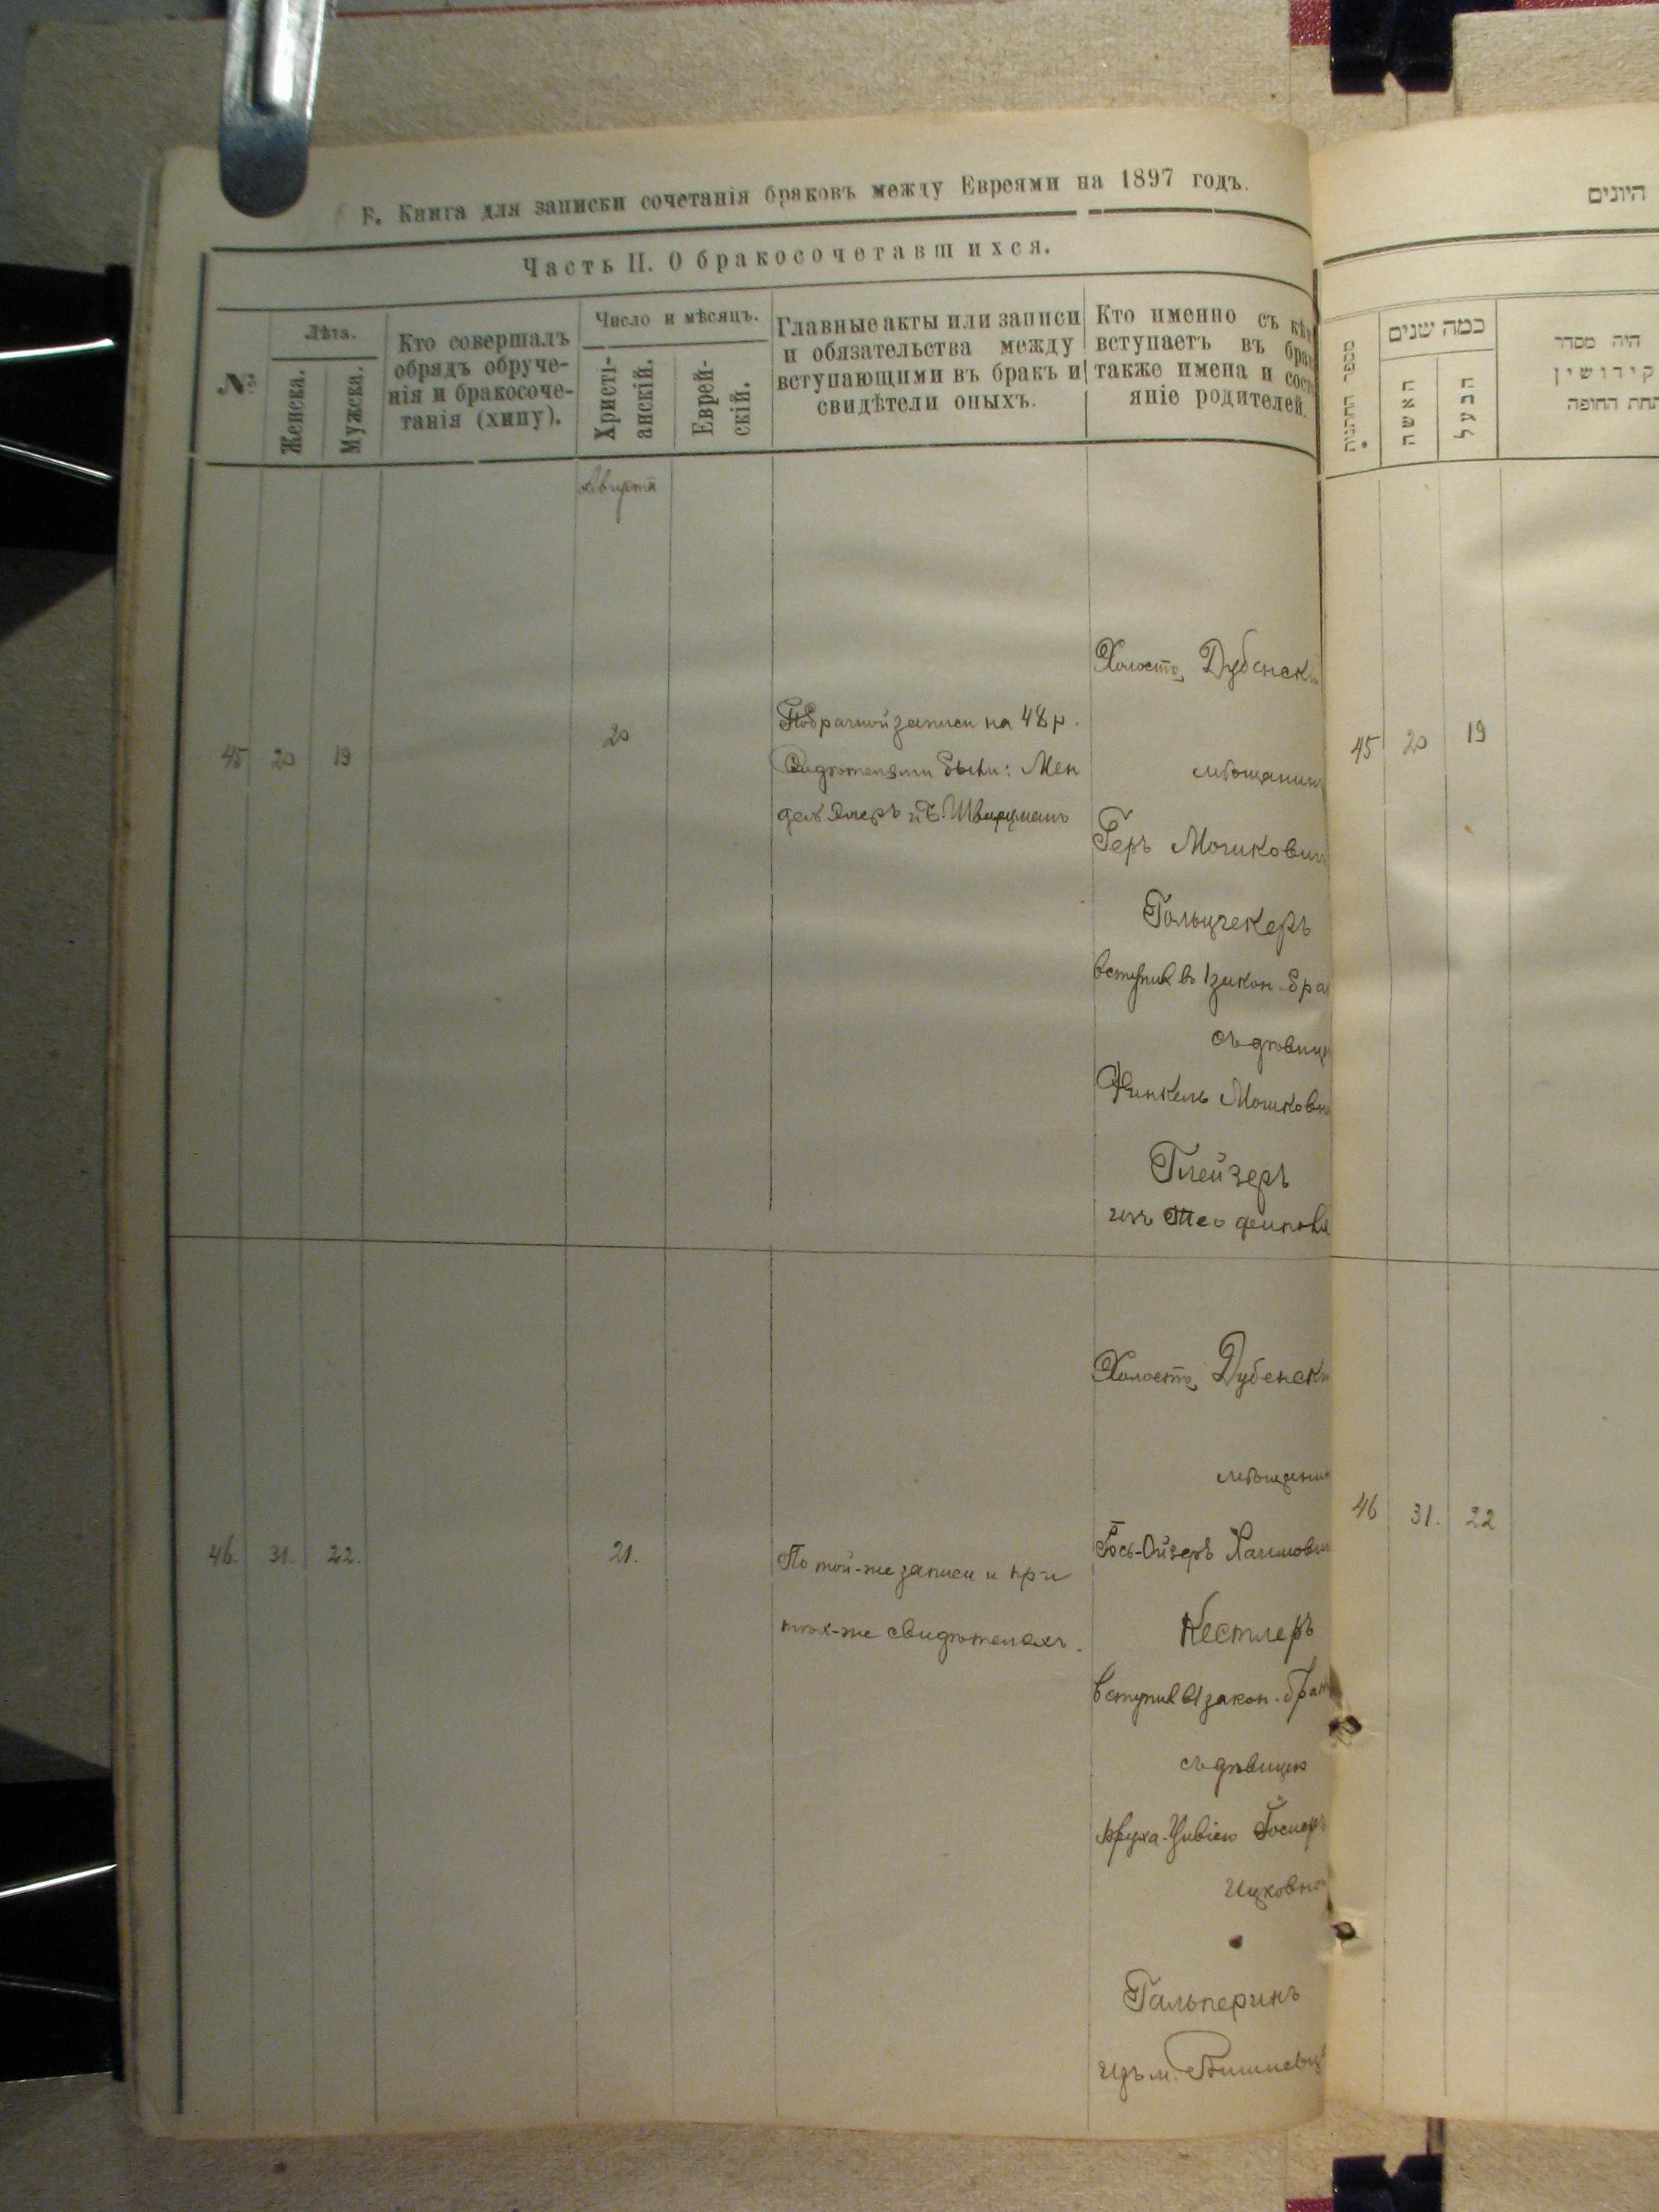 Е. Книга для записки сочетанія браковъ между Евреями на 1897 годъ.
Часть II. О бракосочетавшихся.
№
Лѣта.
Женска.
Мужска.
Кто совершалъ
обрядъ обруче-
нія и бракосоче-
танія (хипу).
Число и мѣсяцъ.
Христі-
анскій.
Еврей-
скій.
Главные акты или записи
и обязательства между
вступающими въ бракъ и
свидѣтели оныхъ.
Кто именно съ кѣ
вступаетъ въ бра
также имена и сос
яніе родителей.
Августа
45 20 19
20
По брачной записи на 48 р.
Свидѣтелями были: Мен
дель и Шварцманъ
Холостъ Дубенскі
мѣщанин
Геръ Мошкович
Гольцгекеръ
вступил въ 1 закон. бра
съ дѣвице
Финкель Мошковн
Глейзеръ
изъ
46. 31. 22.
21.
По той-же записи и при
тѣх-же свидѣтеляхъ.
Холостъ Дубенски
мѣщанин
Іось-Ойзеръ Хаимович
Кестлеръ
вступил в 1 закон. брак
съ дѣвицею
Цивіею
Ицковно
Гальперинъ
изъ м. Вишневц
היונים
מספר החתונות
כמה שנים
האשה
הבעל
היה מסדר
קידושין
תחת החופה
45 20 19
46 31. 22